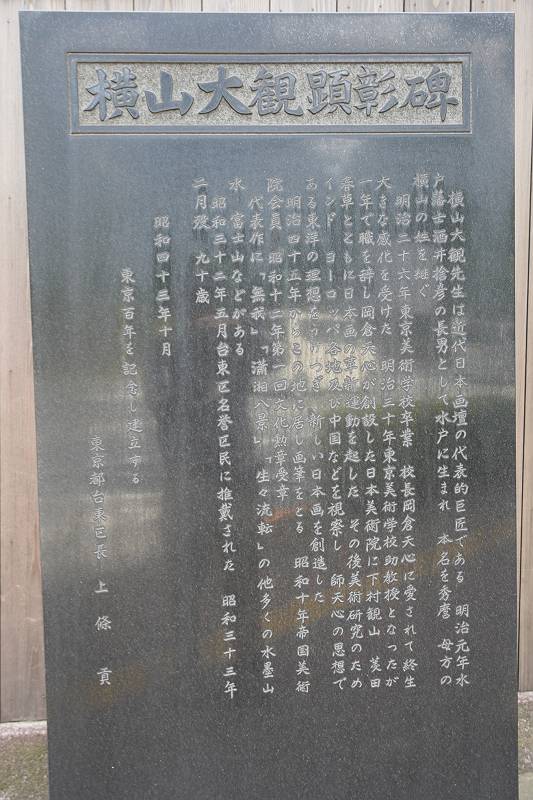 横山大観顕彰碑
横山大観先生は近代日本画壇の代表的巨匠である 明治元年水
戸藩士酒井捨彦の長男として水戸に生まれ 本名を秀麿 母方の
横山の姓を継ぐ
明治二十六年東京美術学校卒業 校長岡倉天心に愛されて終生
大きな感化を受けた 明治三十年東京美術学校助教授となったが
一年で職を辞し岡倉天心が創設した日本美術院に下村観山 菱田
春草とともに日本画の革新運動を起した その後美術研究のため
インド ヨーロッパ各地及び中国などを視察し 師天心の思想で
ある東洋の理想をうけつぎ 新しい日本画を創造した
明治四十五年からこの地に居し画筆をとる 昭和十年帝国美術
院会員 昭和十二年第一回文化勲章受章
代表作に「無我」「瀟湘八景」「生々流転」の他多くの水墨山
水 富士山などがある
昭和三十二年五月台東区名誉区民に推戴された 昭和三十三年
二月歿 九十歳
昭和四十三年十月
東京百年を記念し建立する
東京都台東区長 上條 貢